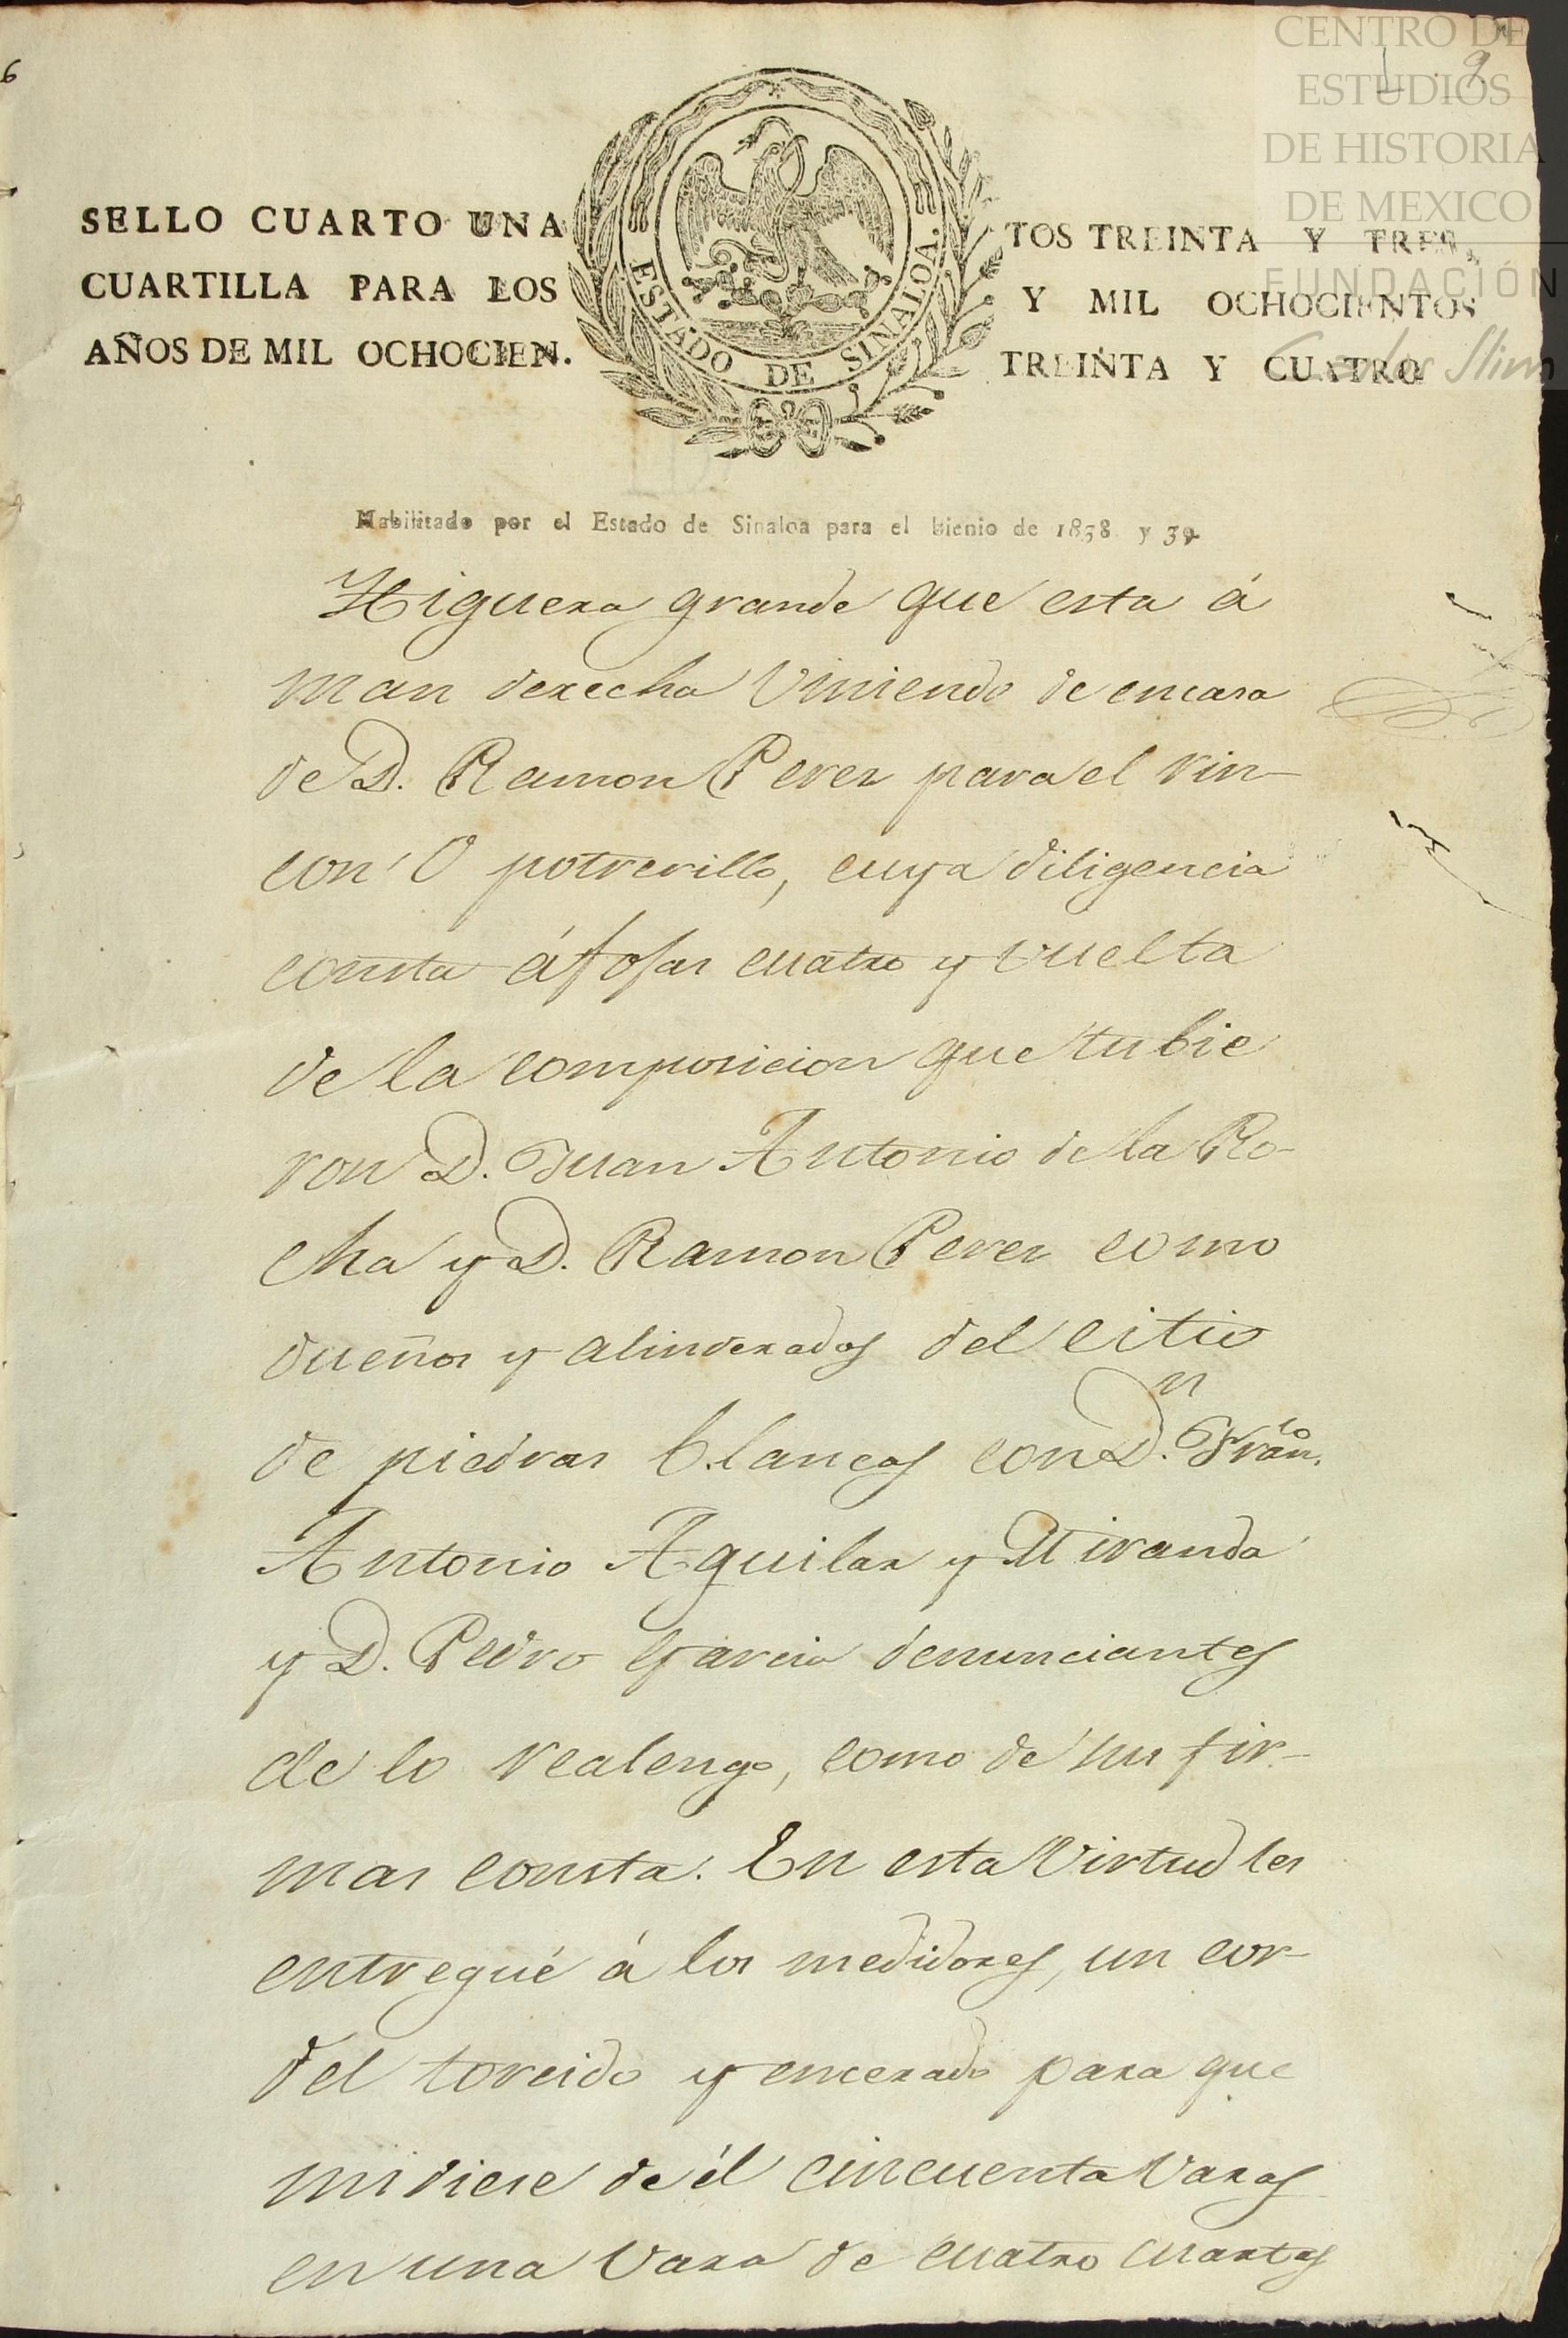 CENTRO DE
ESTUDIOS
DE HISTORIA
DE MEXICO
FUNDACIÓN
Carlos Slim
6
9
SELLO CUARTO UNA
CUARTILLA PARA LOS
AÑOS DE MIL OCHOCIEN.
ESTADO DE SINALOA.
TOS TREINTA Y TRES,
Y MIL OCHOCIENTOS
TREINTA Y CUATRO
Habilitado por el Estado de Sinaloa para el bienio de 1838 y 39
Higuera grande que esta á
man derecha Viniendo de encasa
de D. Ramon Perez para el rin-
con O potrerillo, cuya diligencia
consta á fojas cuatro y vuelta
de la composicion que tubie
ron D. Juan Antonio de la Ro-
cha y D. Ramon Perez como
dueños y alinderados del citio
de piedras blancas con D.n Fran.co
Antonio Aguilar y Miranda
y D. Pedro Garcia denunciantes
de lo realengo, como de sus fir-
mas consta. En esta Virtud les
entregué á los medidores, un cor-
del torcido y encerado para que
midiese de él cincuenta Varas
en una Vara de cuatro cuartas